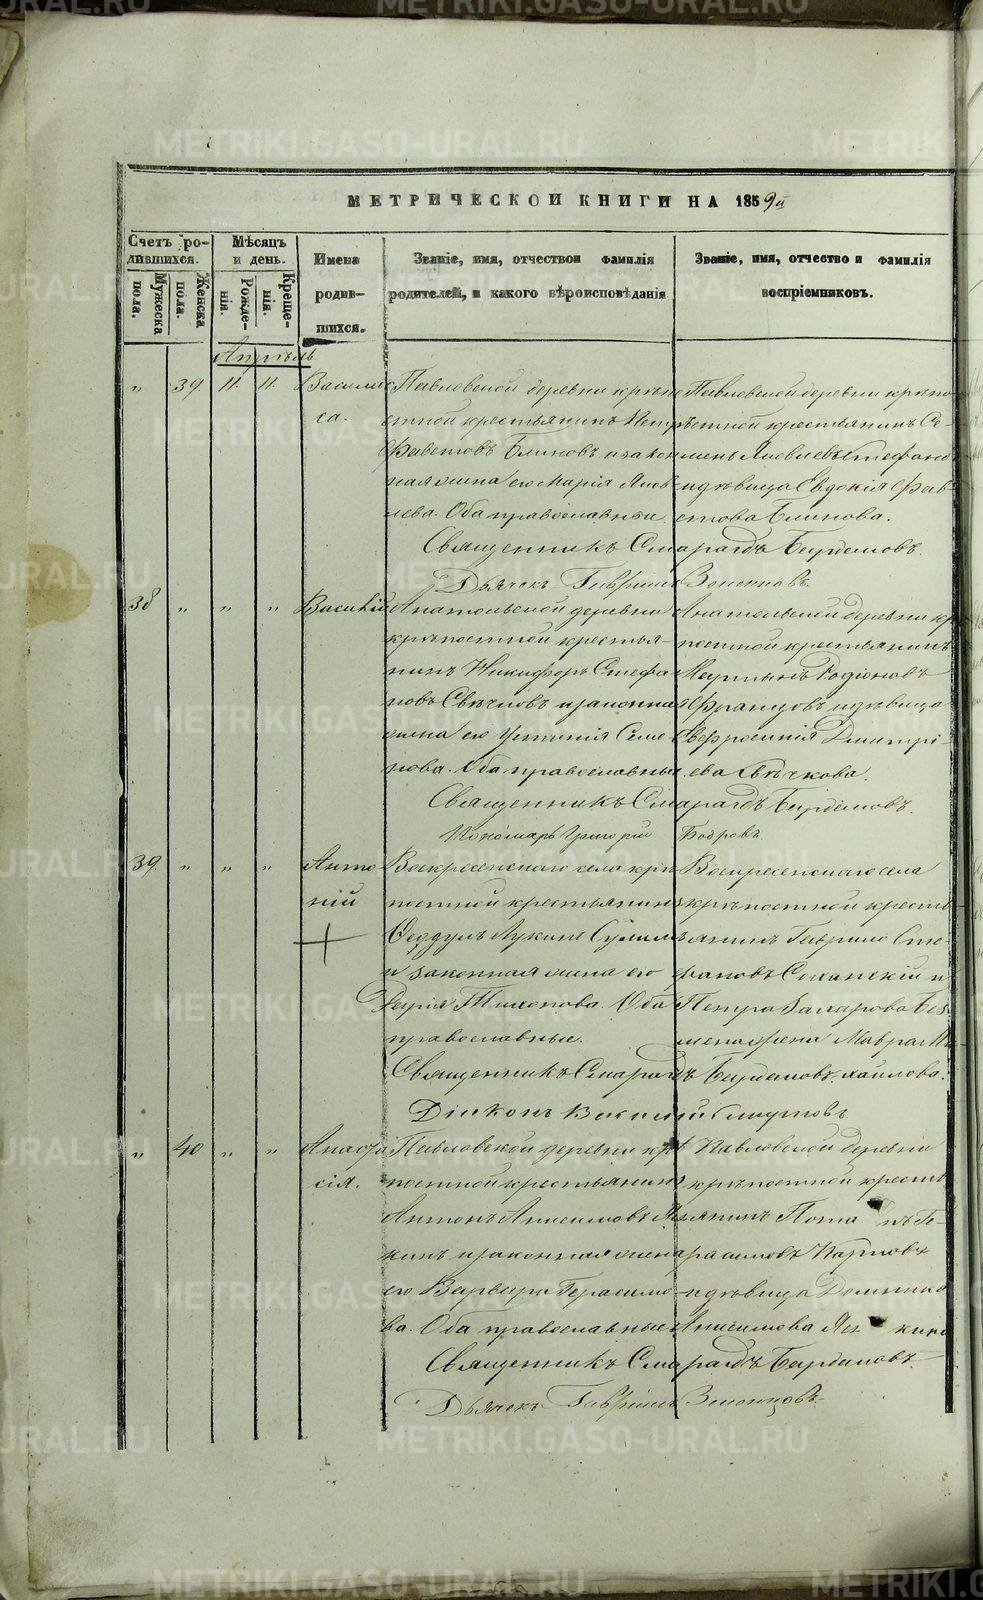 МЕТРИЧЕСКОЙ КНИГИ НА 1859й
Счетъ родившихся.
Мужеска пола.
Женска пола.
Мѣсяцъ и день.
Рожденія.
Крещенія.
Имена родившихся.
Званіе, имя, отчество и фамилія
родителей, и какого вѣроисповѣданія
Званіе, имя, отчество и фамилія
воспріемниковъ.
Апрѣль
" 39. 11. 11. Васили
са.
Павловской деревни крѣпо
стной крестьянинъ Петръ
Блиновъ и закон
ная жена его Марія Яков
лева. Оба православные.
Павловской деревни крѣпо
стной крестьянинъ Се
менъ Яковлевъ
и дѣвица Евдокія
Блинова.
Священникъ Смарагдъ
Дьячекъ Гавріилъ
38 " " " Василій
Анатольской деревни
крѣпостной крестья
нинъ Никифоръ Стефа
новъ и законная
жена его Устинія Семе
нова. Оба православные
Анатольской деревни крѣ
постной крестьянинъ
Мартынъ Родіоновъ
и дѣвица
Евфросинія Дмитрі
ева Свѣчкова.
Священникъ Смарагдъ
Пономарь Григорій Бобровъ
39. " " " Анто
ній
Воскресенскаго села крѣ
постной крестьянинъ
Ѳеддулъ Лукинъ
и законная жена его
Дарія Тихонова. Оба
православные.
Воскресенскаго села
крѣпостной кресть
янинъ Гаврило Сте
фановъ и
Петра Захарова
жена Мавра Ми
хайлова.
Священникъ Смарагдъ
Діаконъ Василій Смирновъ
" 40 " " Анаста
сія.
Павловской деревни крѣ
постной крестьянинъ
Антонъ Анисимовъ
и законная жена
его Варвара Герасимо
ва. Оба православные
Павловской деревни
крѣпостной кресть
янинъ Ге
расимовъ Карповъ
и дѣвица
Анисимова
Священникъ Смарагдъ
Дьячекъ Гавріилъ
METRIKI.GASO-URAL.RU